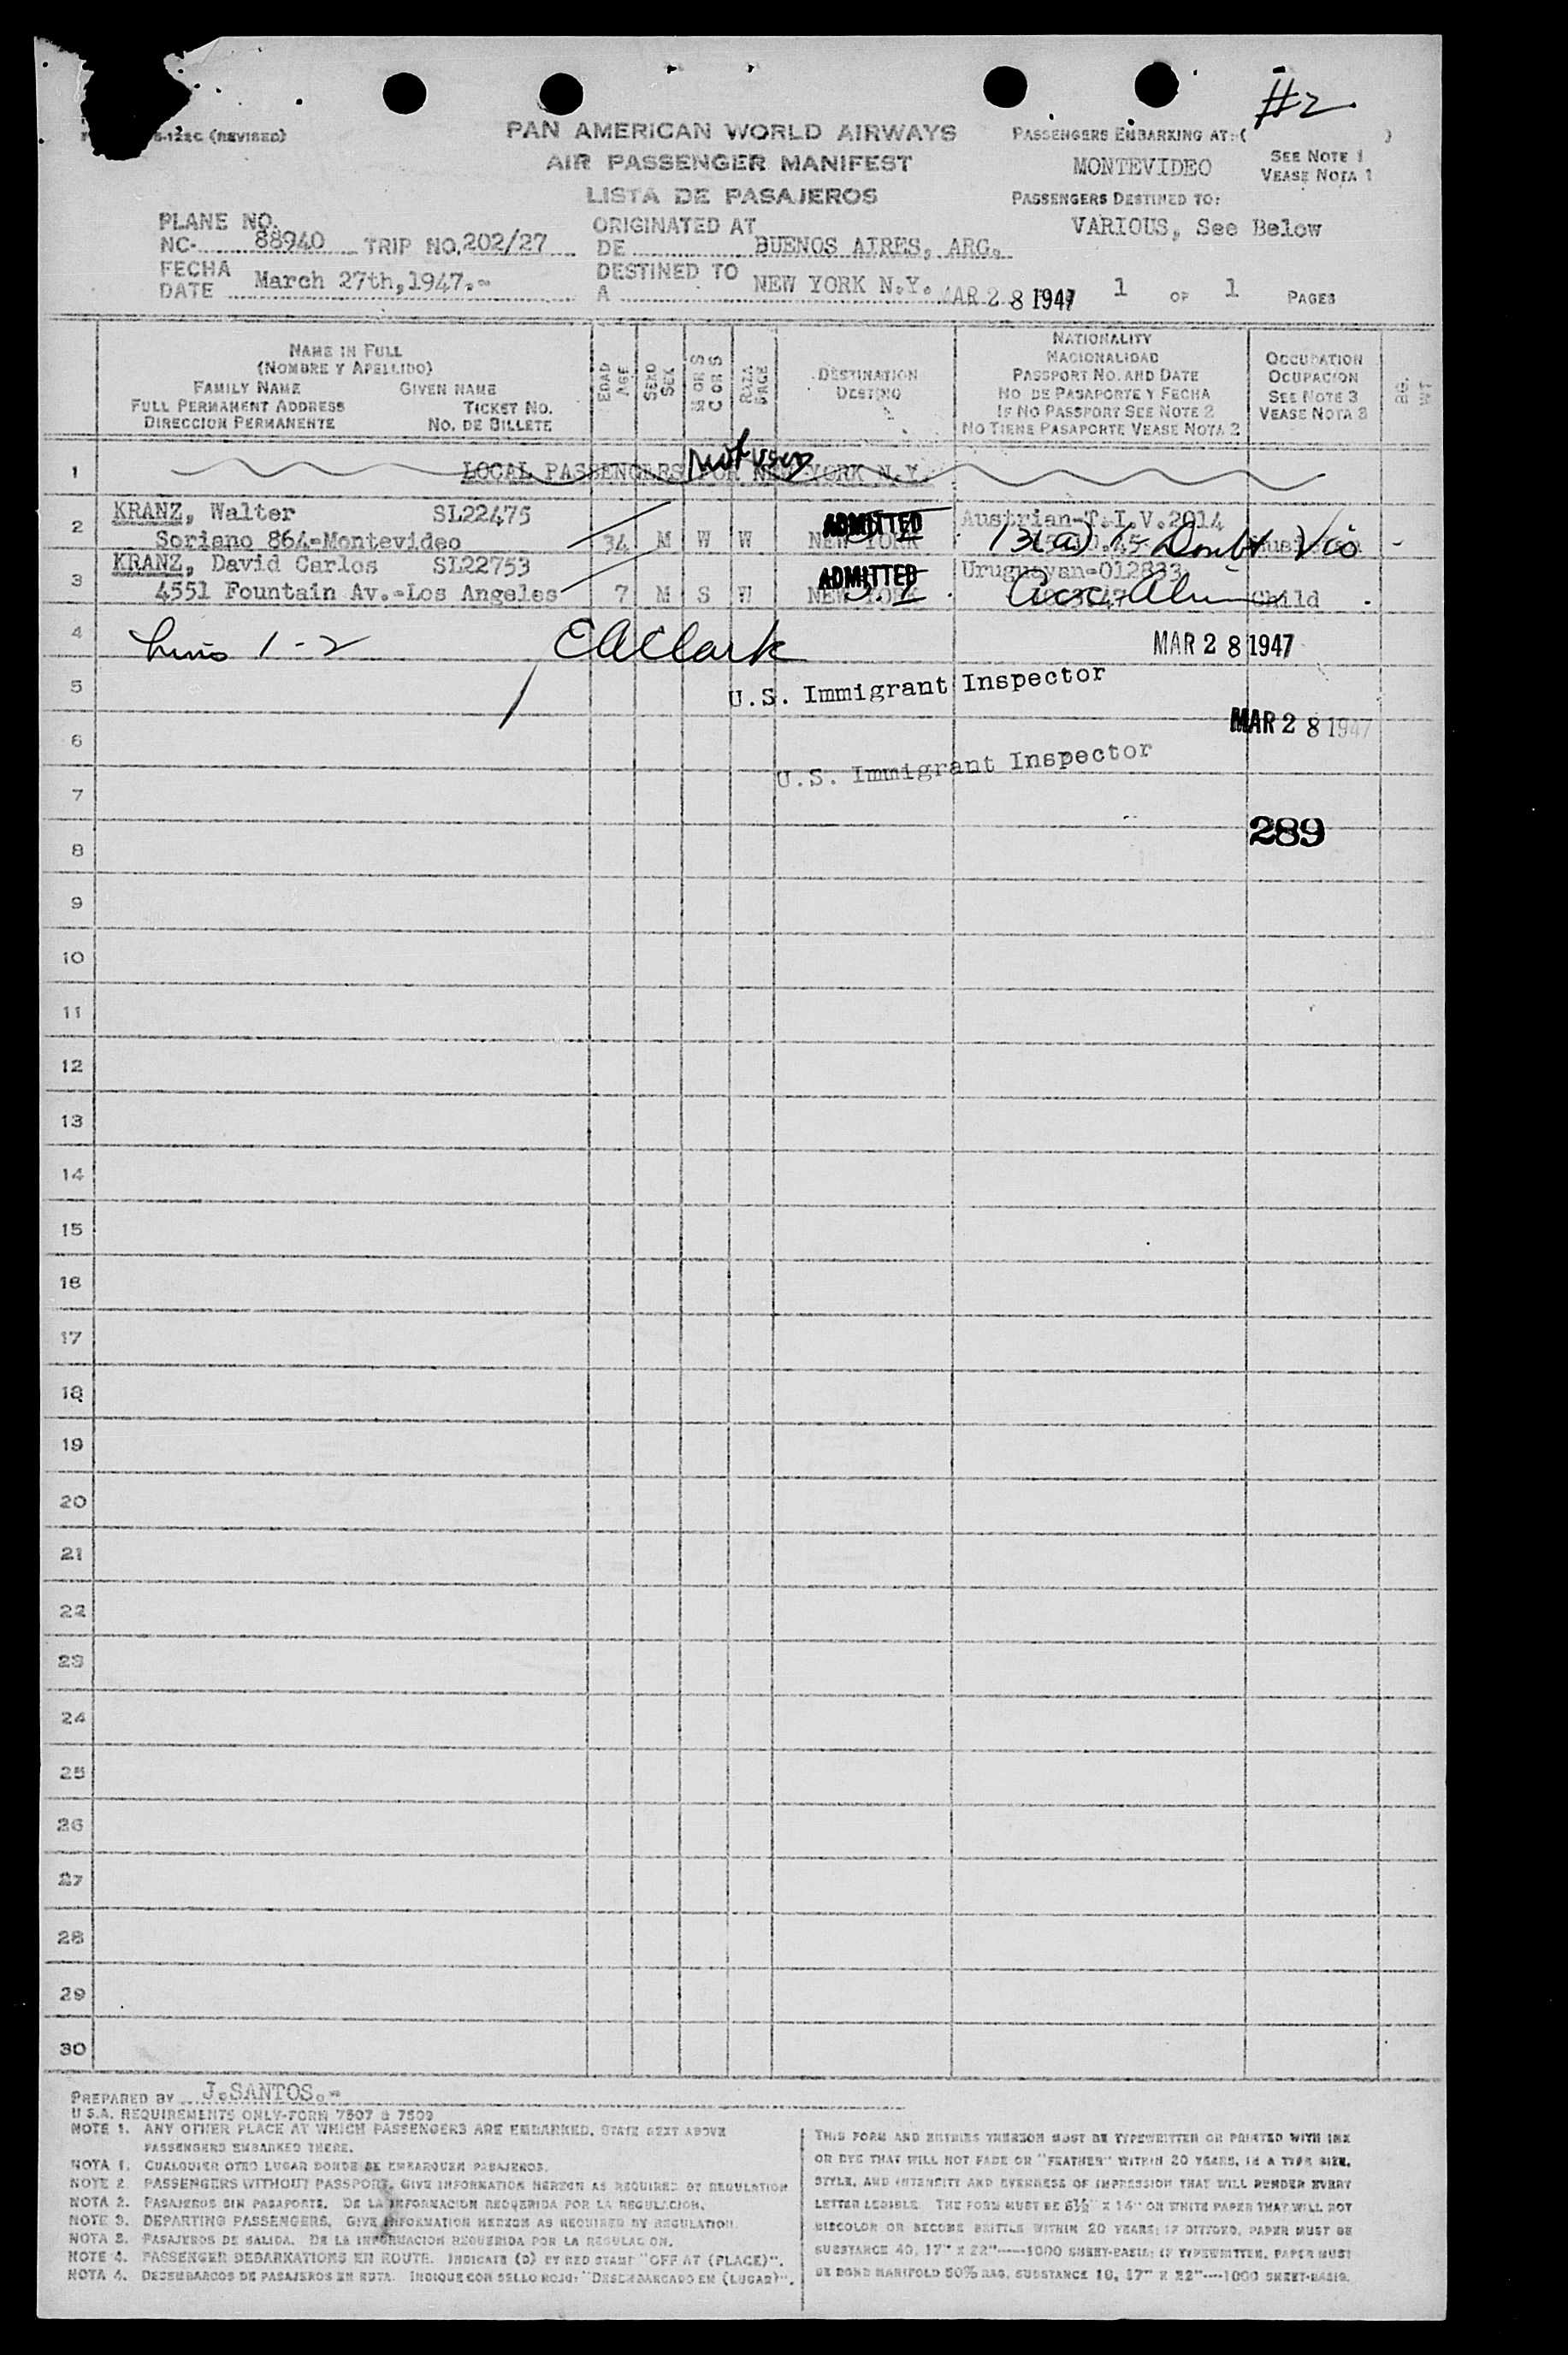 #2
S-122C (REVISED)
PAN AMERICAN WORLD AIRWAYS
AIR PASSENGER MANIFEST
LISTA DE PASAJEROS
PASSENGERS EMBARKING AT:( )
MONTEVIDEO
SEE NOTE 1
VEASE NOTA 1
PASSENGERS DESTINED TO:
VARIOUS, See Below
PLANE NO.
NC- 88940 TRIP NO. 202/27
ORIGINATED AT
DE BUENOS AIRES, ARG.
FECHA
DATE March 27th,1947.-
DESTINED TO
A NEW YORK N.Y.
MAR 28 1947
1 OF 1 PAGES
NAME IN FULL
(NOMBRE Y APELLIDO)
FAMILY NAME GIVEN NAME
FULL PERMANENT ADDRESS TICKET NO.
DIRECCION PERMANENTE NO. DE BILLETE
EDAD
AGE
SEXO
SEX
M OR S
C OR S
RAZA
RACE
DESTINATION
DESTINO
NATIONALITY
NACIONALIDAD
PASSPORT NO. AND DATE
NO. DE PASAPORTE Y FECHA
IF NO PASSPORT SEE NOTE 2
NO TIENE PASAPORTE VEASE NOTA 2
OCCUPATION
OCUPACION
SEE NOTE 3
VEASE NOTA 3
1 LOCAL PASSENGERS FOR NEW YORK N.Y.
Not used
2 KRANZ, Walter SL22475
Soriano 864-Montevideo 34 M W W NEW YORK
ADMITTED
Austrian-T.I.V.2014
13(a)
3 KRANZ, David Carlos SL22753
4551 Fountain Av.-Los Angeles 7 M S W NEW YORK
ADMITTED
Uruguayan-012833
Child
4 1-2 EAClark MAR 28 1947
5 U.S. Immigrant Inspector
6 MAR 28 1947
U.S. Immigrant Inspector
7
289
8
9
10
11
12
13
14
15
16
17
18
19
20
21
22
23
24
25
26
27
28
29
30
PREPARED BY J.SANTOS.-
U.S.A. REQUIREMENTS ONLY-FORM 7507 & 7509
NOTE 1. ANY OTHER PLACE AT WHICH PASSENGERS ARE EMBARKED. STATE NEXT ABOVE
PASSENGERS EMBARKED THERE.
NOTA 1. CUALQUIER OTRO LUGAR DONDE SE EMBARQUEN PASAJEROS.
NOTE 2. PASSENGERS WITHOUT PASSPORT. GIVE INFORMATION HEREON AS REQUIRED BY REGULATION
NOTA 2. PASAJEROS SIN PASAPORTE. DE LA INFORMACION REQUERIDA POR LA REGULACION.
NOTE 3. DEPARTING PASSENGERS. GIVE INFORMATION HEREON AS REQUIRED BY REGULATION.
NOTA 3. PASAJEROS DE SALIDA. DE LA INFORMACION REQUERIDA POR LA REGULACION.
NOTE 4. PASSENGER DEBARKATIONS EN ROUTE. INDICATE (D) BY RED STAMP "OFF AT (PLACE)".
NOTA 4. DESEMBARCOS DE PASAJEROS EN RUTA. INDIQUE CON SELLO ROJO: "DESEMBARCADO EN (LUGAR)".
THIS FORM AND ENTRIES THEREON MUST BE TYPEWRITTEN OR PRINTED WITH INK
OR DYE THAT WILL NOT FADE OR "FEATHER" WITHIN 20 YEARS, IN A TYPE SIZE,
STYLE, AND INTENSITY AND EVENNESS OF IMPRESSION THAT WILL RENDER EVERY
LETTER LEGIBLE. THE FORM MUST BE 8½" X 14" ON WHITE PAPER THAT WILL NOT
DISCOLOR OR BECOME BRITTLE WITHIN 20 YEARS; IF DITTOED, PAPER MUST BE
SUBSTANCE 40, 17" X 22"----1000 SHEET-BASIS; IF TYPEWRITTEN, PAPER MUST
BE BOND MANIFOLD 50% RAG, SUBSTANCE 10, 17" X 22"----1000 SHEET-BASIS.